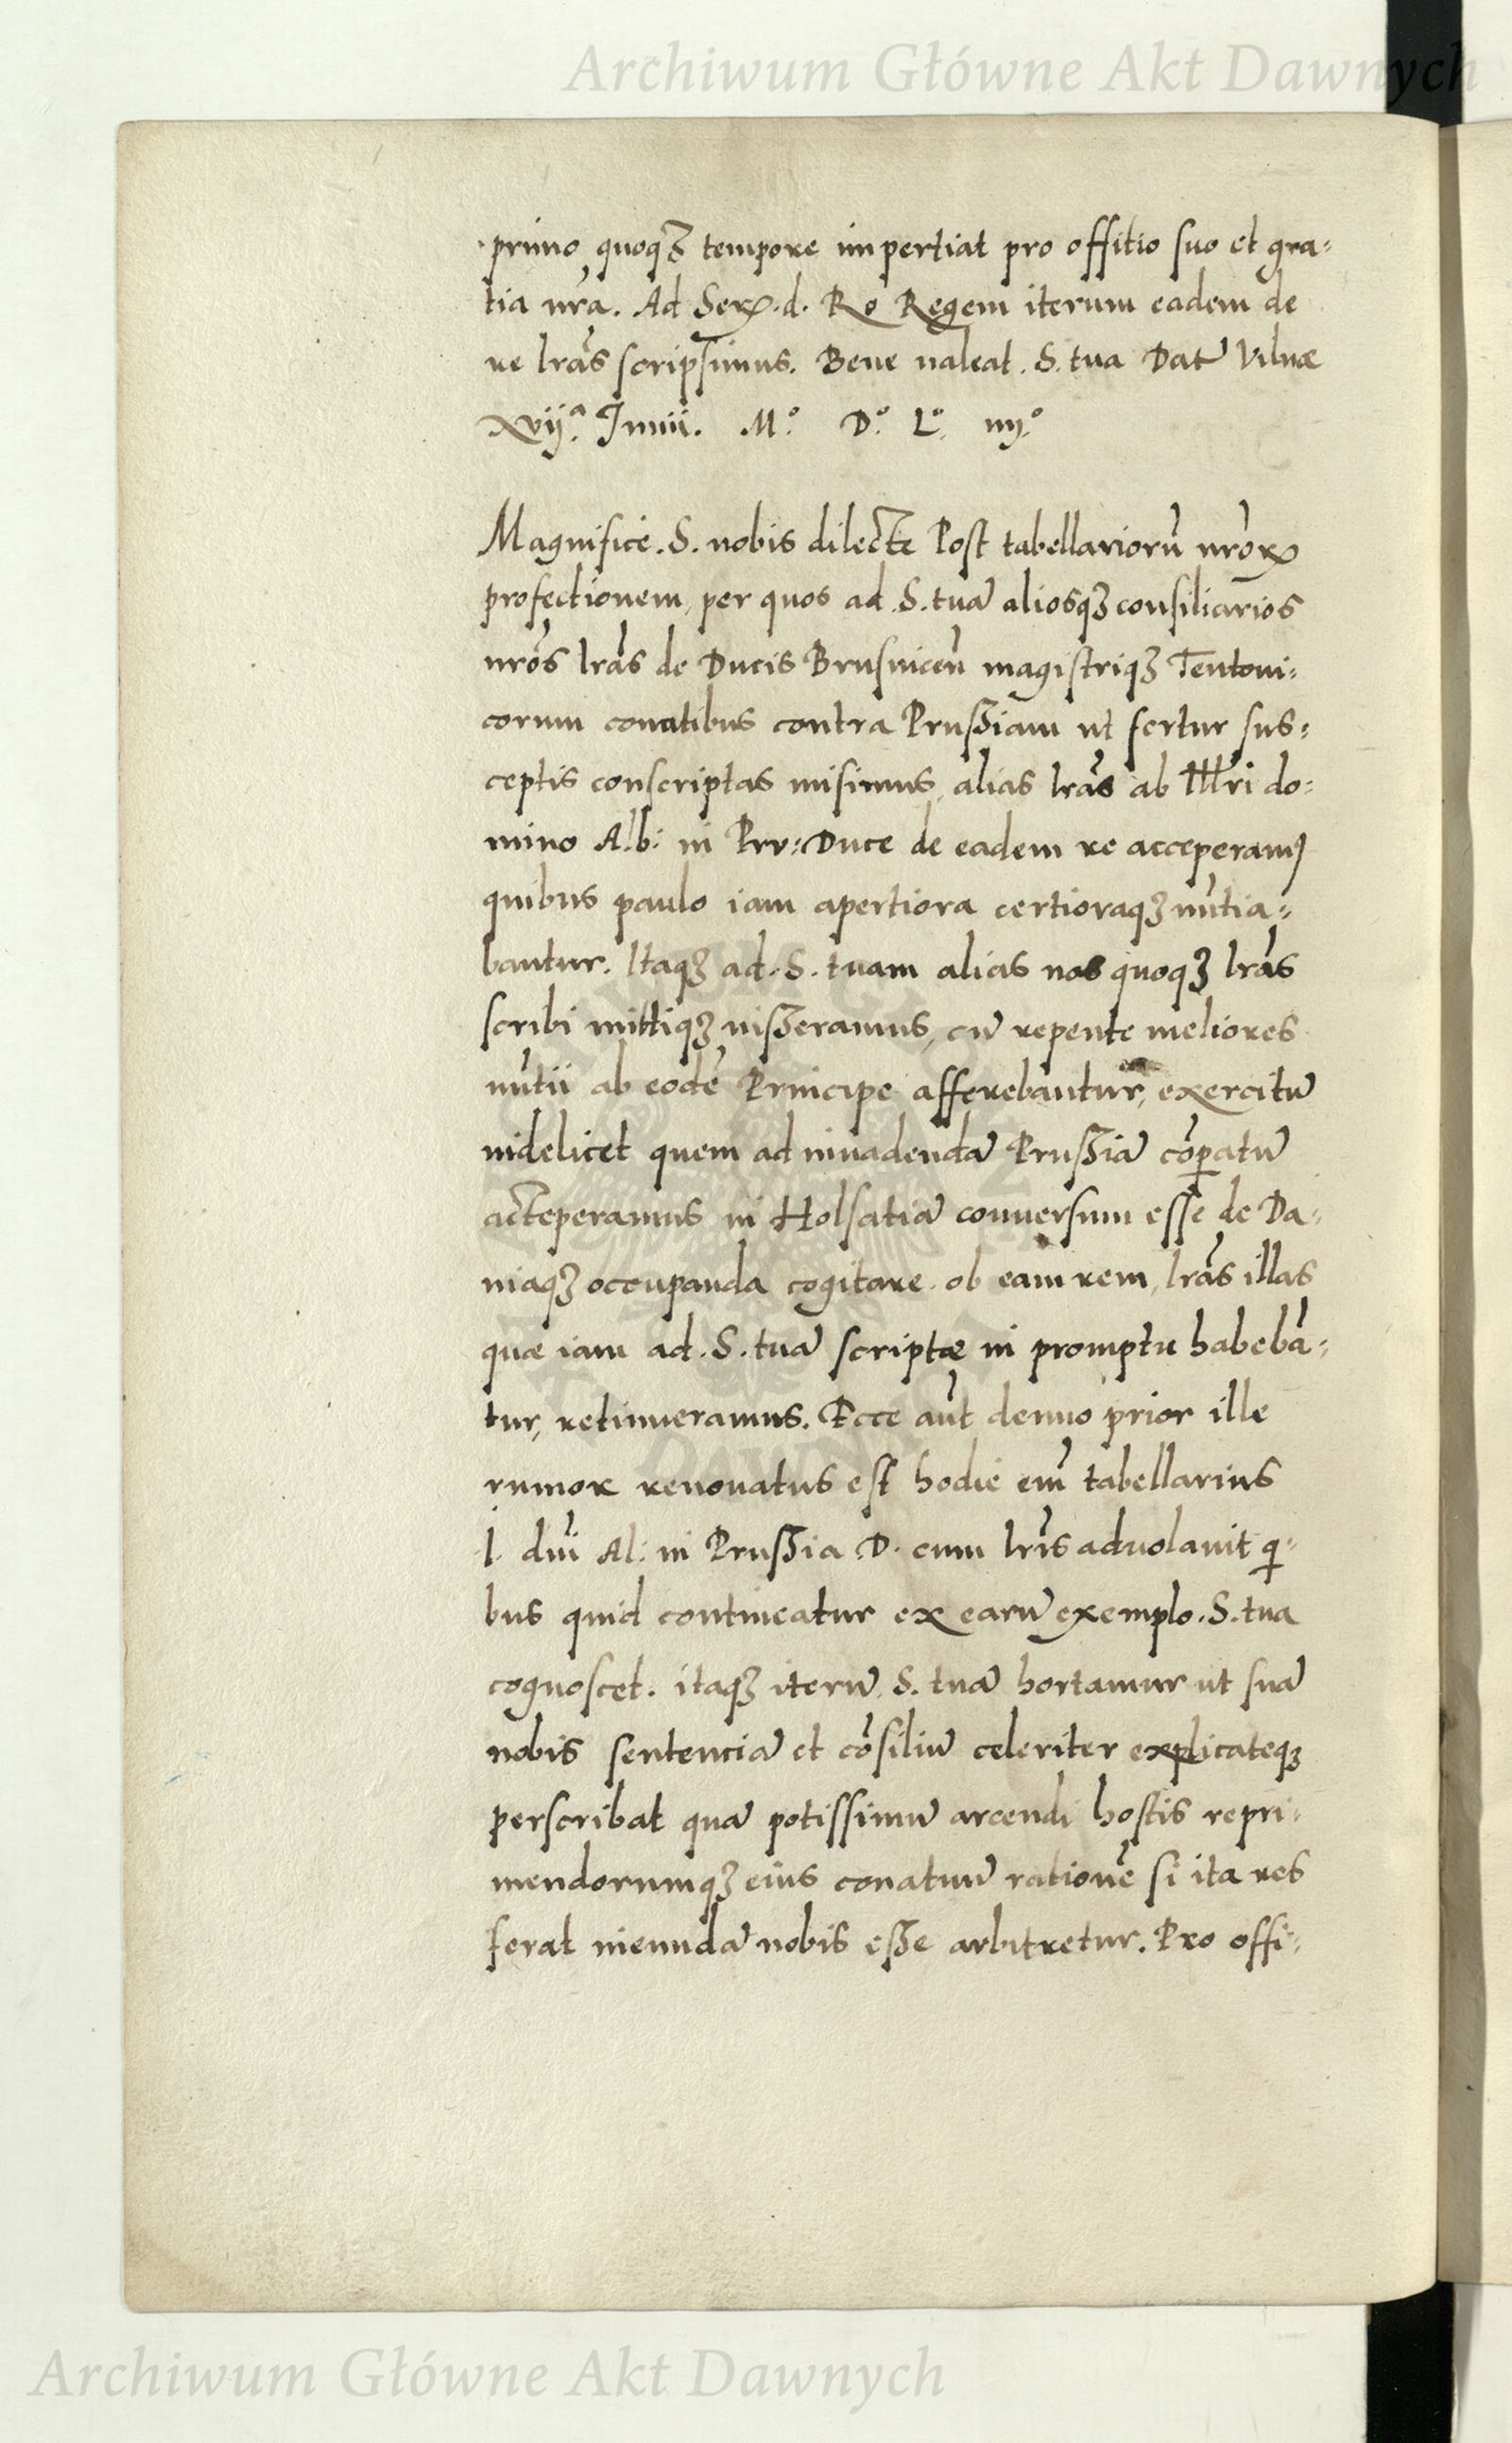 Archiwum Główne Akt Dawnych
primo quoqꝫ tempore impertiat pro offitio suo et gra=
tia nr̃a. Ad Serꝝ. d. Ro Regem iterum eadem de
re lrãs scripsimus. Bene ualeat. S. tua Dat̃ Vilnæ
xvijª. Junii. M.º D.º L.º iiij.º
Magnifice. S. nobis dilecte Post tabellariorũ nr̃oꝝ
profectionem, per quos ad S. tuã aliosqꝫ consiliarios
nr̃os lrãs de Ducis Brusuiceñ magistriqꝫ Teutoni=
corum conatibus contra Prußiam ut fertur sus=
ceptis conscriptas misimus, alias lrãs ab Illr̃i do=
mino Alb: in Pru: Duce de eadem re acceperamꝰ
quibus paulo iam apertiora certioraqꝫ nũtia=
bantur. Itaqꝫ ad. S. tuam alias nos quoqꝫ lrãs
scribi mittiqꝫ iußeramus, cũ repente meliores
nũtii ab eodẽ Principe afferebantur, exercitũ
uidelicet quem ad inuadendã Prußiã cõꝑatũ
acceperamus in Holsatiã conuersum esse de Da=
niaqꝫ occupanda cogitare. ob eam rem, lrãs illas
quæ iam ad. S. tuã scriptæ in promptu habebã=
tur, retinueramus. Ecce aũt denuo prior ille
rumor renouatus est hodie eñi tabellarius
I. dñi Al: in Prußia D. cum lrĩs aduolauit qi=
bus quid contineatur ex earũ exemplo. S. tua
cognoscet. itaqꝫ iterũ. S. tuã hortamur ut suã
nobis sentenciã et cõsiliũ celeriter explicateqꝫ
perscribat quã potissimũ arcendi hostis repri=
mendorumqꝫ eius conatuũ rationẽ si ita res
ferat ineundã nobis eße arbitretur. Pro offi=
Archiwum Główne Akt Dawnych